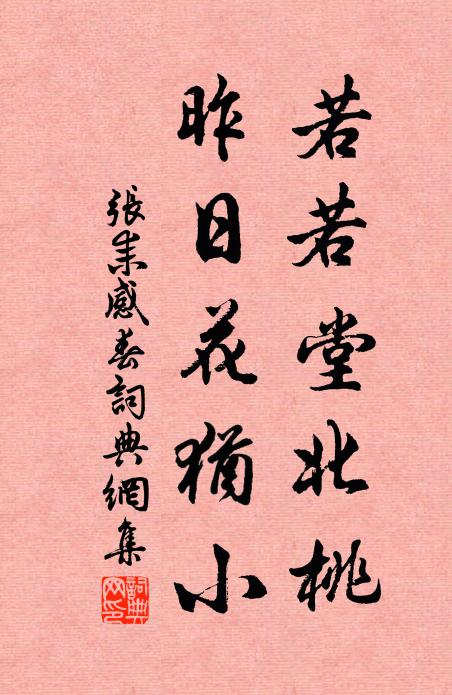 若若堂北桃
昨日花猶小
張耒感春詞典網集
詞典網印